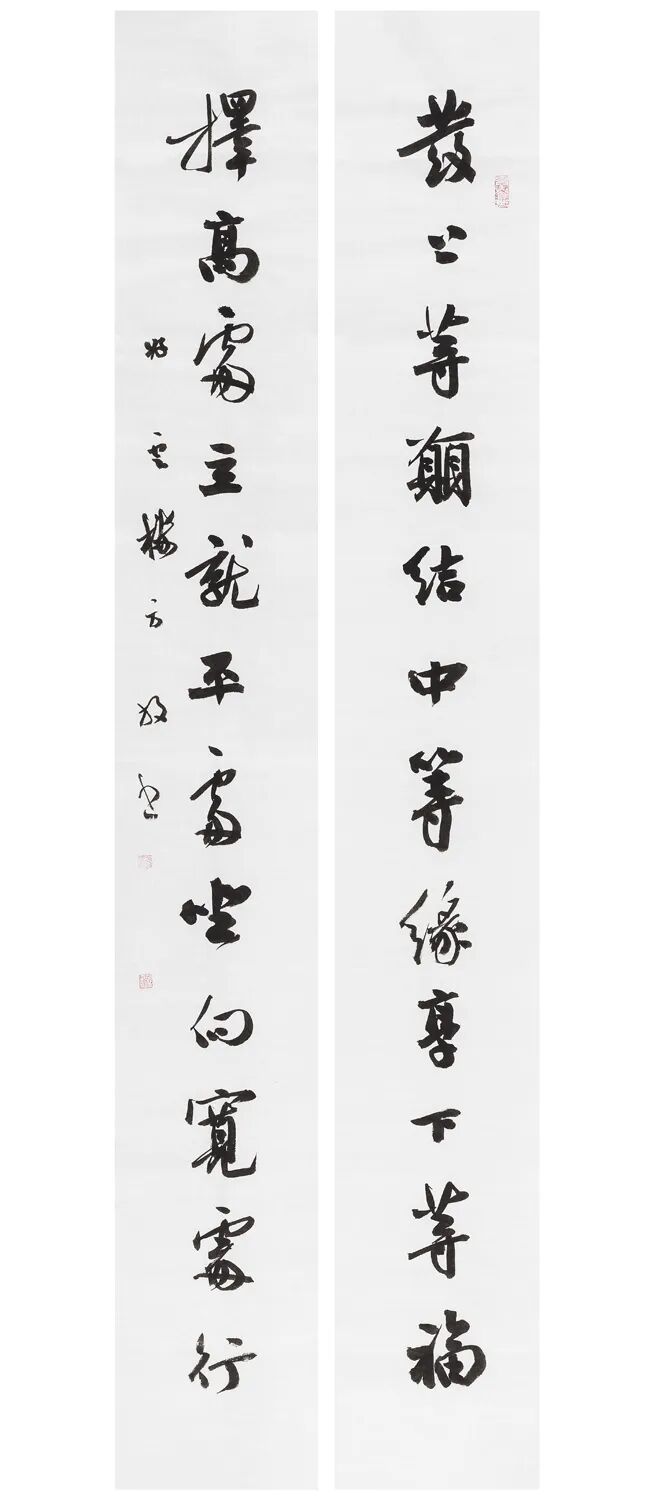 發上等願結中等緣享下等福
擇高處立就平處坐向寬處行
雲樓方放書